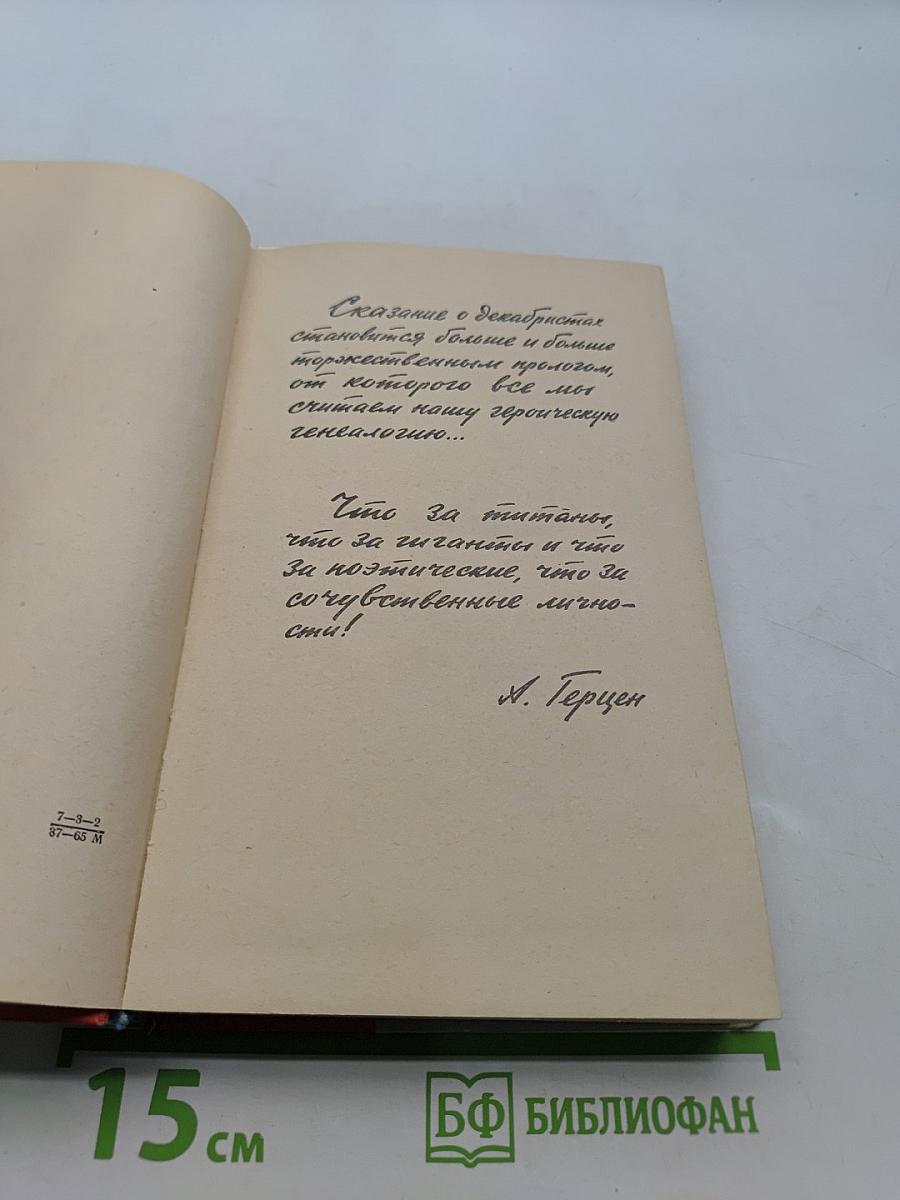 Сказание о декабристах
становится больше и больше
торжественным прологом,
от которого все мы
считаем нашу героическую
генеалогию...
Что за титаны,
что за гиганты и что
за поэтические, что за
сочувственные лично-
сти!
А. Герцен
7—3—2
87—65 М
15 см
БФ БИБЛИОФАН